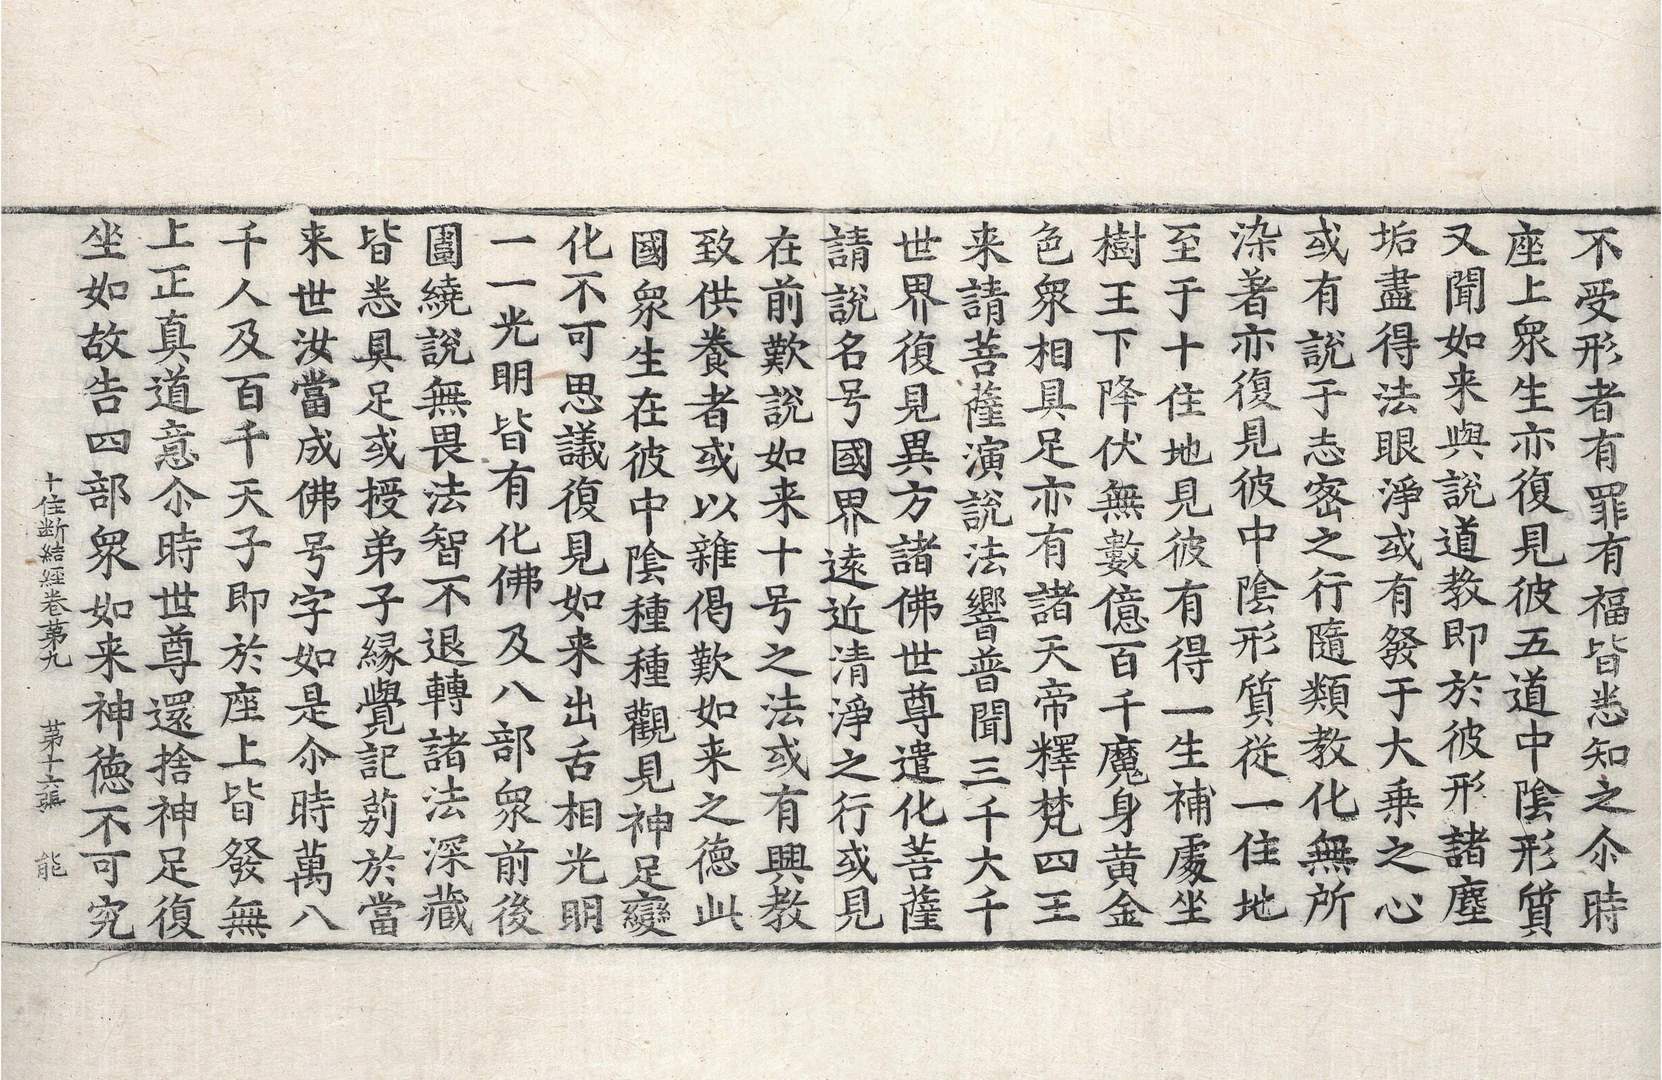 不受形者有罪有福皆悉知之尒時
座上衆生亦復見彼五道中陰形質
又聞如来與說道教即於彼形諸塵
垢盡得法眼淨或有發于大乗之心
或有說于志密之行隨類教化無所
染著亦復見彼中陰形質従一住地
至于十住地見彼有得一生補處坐
樹王下降伏無數億百千魔身黄金
色衆相具足亦有諸天帝釋梵四王
来請菩薩演說法響普聞三千大千
世界復見異方諸佛世尊遣化菩薩
請說名号國界遠近清淨之行或見
在前歎說如来十号之法或有興教
致供養者或以雜偈歎如来之德此
國衆生在彼中陰種種觀見神足變
化不可思議復見如来出舌相光明
一一光明皆有化佛及八部衆前後
圍繞說無畏法智不退轉諸法深藏
皆悉具足或授弟子縁覺記莂於當
来世汝當成佛号字如是尒時萬八
千人及百千天子即於座上皆發無
上正真道意尒時世尊還捨神足復
坐如故告四部衆如来神德不可究
十住断結經卷苐九　苐十六張　能